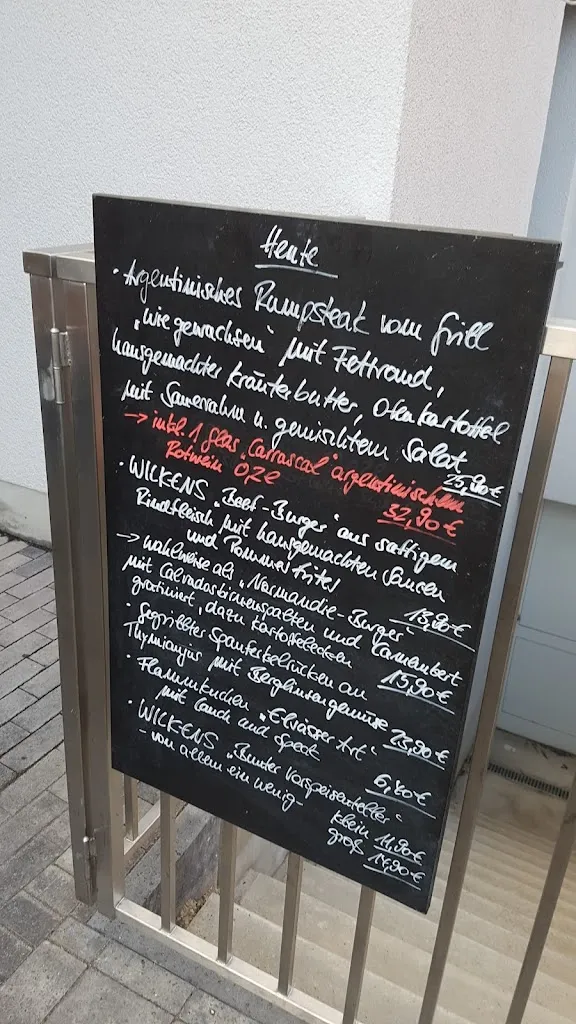 Heute
· Argentinisches Rumpsteak vom Grill
"wie gewachsen" mit Fettrand,
hausgemachter Kräuterbutter, Ofenkartoffel
mit Sauerrahm u. gemischtem Salat
25,90€
→ inkl. 1 Glas "Carrascal" argentinischem
Rotwein ÖZE 32,90€
· WICKENS "Beef-Burger" aus saftigem
Rindfleisch mit hausgemachten Saucen
und Pommes frites 13,90€
→ wahlweise als "Normandie-Burger"
mit Calvadosbirnenspalten und Camembert
gratiniert, dazu Kartoffelecken 15,90€
· Gegrillter Spanferkelrücken an
Thymianjus mit Berglinsengemüse 23,90€
· Flammkuchen "Elsässer Art"
mit Lauch und Speck 6,40€
· WICKENS "Bunter Vorspeisenteller"
- von allem ein wenig - klein 11,90€
groß 14,90€